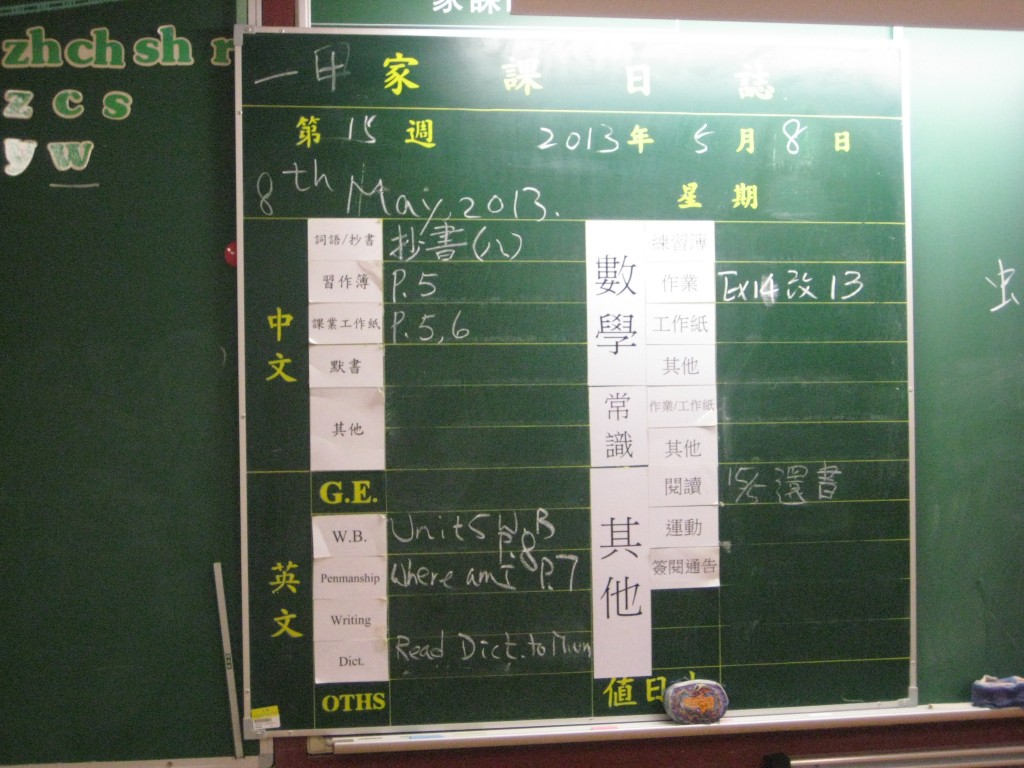 家課
zh ch sh r
z c s
y w
一甲 家課日誌
第 15 週 2013年 5月 8日
8th May, 2013. 星期
中文
詞語/抄書 抄書(八)
習作簿 P.5
課業工作紙 P.5,6
默書
其他
G.E.
英文
W.B. Unit 5 W.B P.8
Penmanship Where am I P.7
Writing
Dict. Read Dict. to Mum
OTHS
數學
練習簿
作業 Ex14改13
工作紙
其他
常識
作業/工作紙
其他
其他
閱讀 15/5 還書
運動
簽閱通告
值日
虫